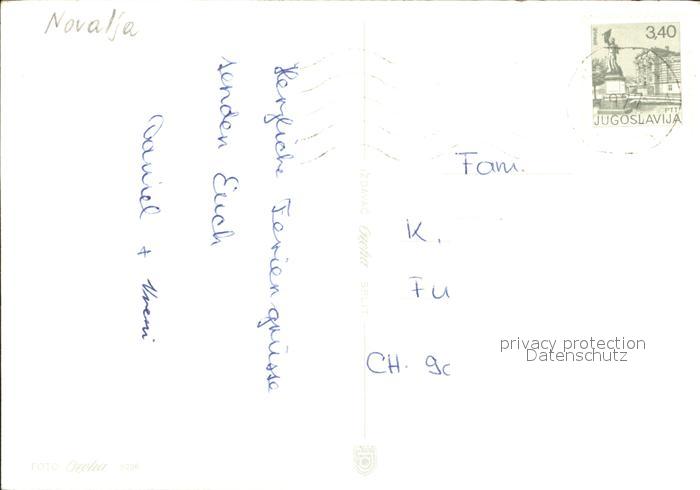 Novalja
3,40
1977
PTT
JUGOSLAVIJA
Herzliche Feriengrüsse
senden Euch
Daniel + Vreni
Fam.
K.
Fu
CH. 90
privacy protection
Datenschutz
IZDAVAČ SPLIT
FOTO